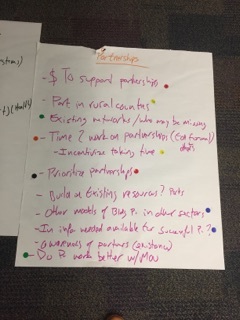 Partnership
- $ To support partnerships
- Part in rural counties
- Existing networks / who may be missing
- Time 2 work on partnerships (
- Incentivize taking time
- Prioritize partnerships
- Build on Existing resources?
- Other models of in other sectors
- In info needed available for successful P. ?
- awareness of partners (existence)
- Do P. work better w/ MOU